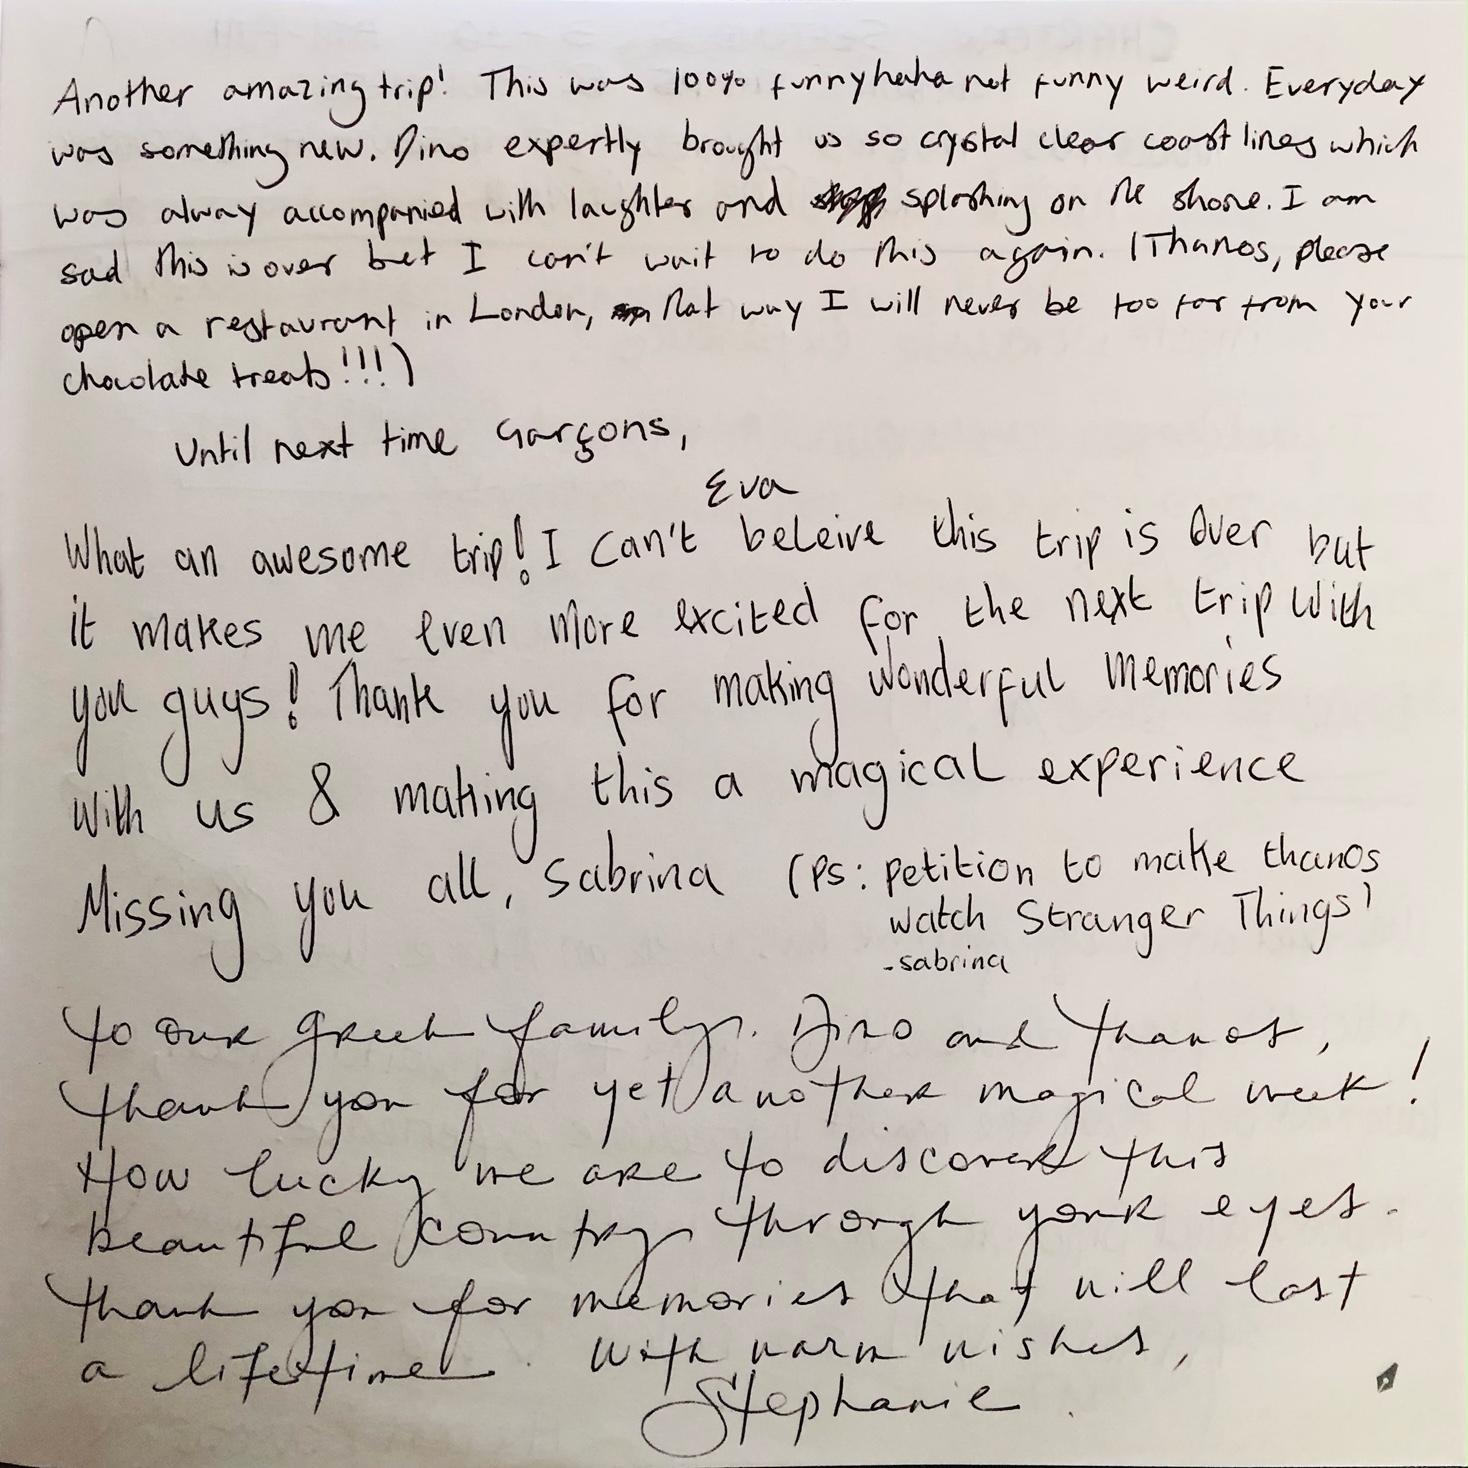 Another amazing trip! This was 100% funny haha not funny weird. Everyday
was something new. Dino expertly brought us so crystal clear coast lines which
was alway accompanied with laughter and splashing on the shore. I am
sad this is over but I can't wait to do this again. (Thanos, please
open a restaurant in London, that way I will never be too far from your
chocolate treats!!!)
Until next time Garçons,
Eva
What an awesome trip! I can't beleive this trip is over but
it makes me even more excited for the next trip with
you guys! Thank you for making wonderful memories
with us & making this a magical experience
Missing you all, Sabrina (PS: petition to make thanos
watch Stranger Things)
-sabrina
To our Greek family. Dino and Thanos,
thank you for yet another magical week!
How lucky we are to discover this
beautiful country through your eyes.
Thank you for memories that will last
a lifetime. With warm wishes,
Stephanie.